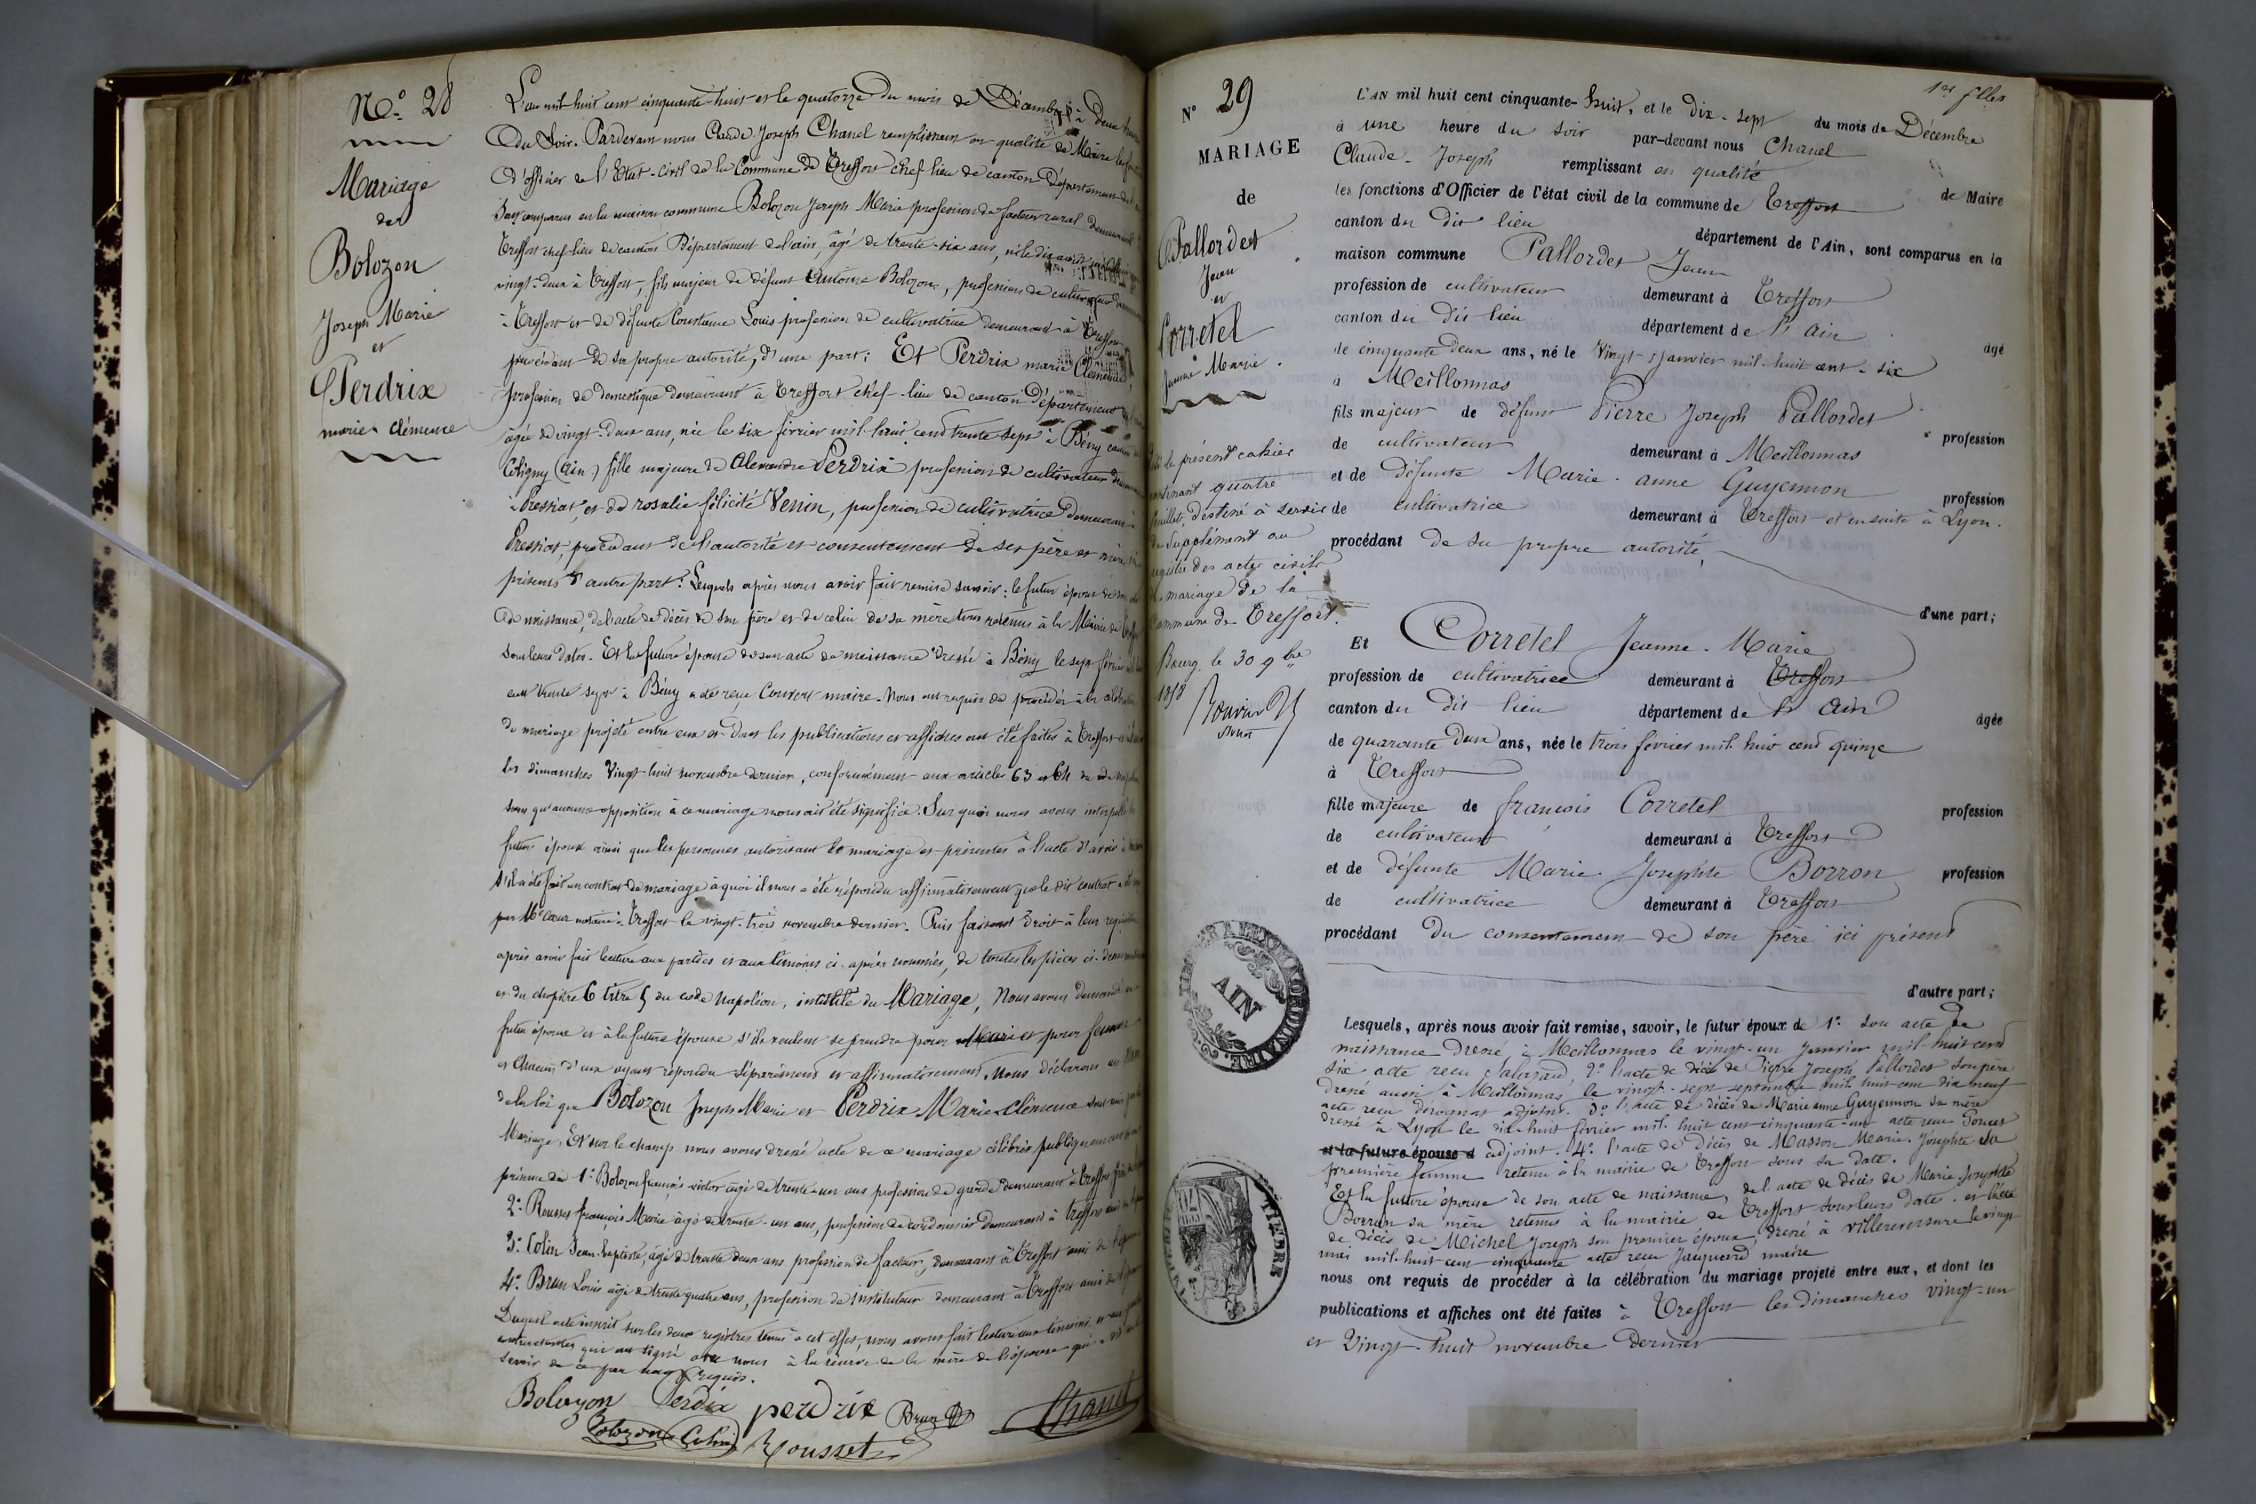 N.° 28
Mariage
de
Bolozon
Joseph Marie
et
Perdrix
marie clémence
L'an mil huit cent cinquante-huit et le quatorze du mois de Décembre à deux
du Soir. Pardevant nous Claude Joseph Chanel remplissant en qualité de Maire les
d'officier de l'Etat-civil de la Commune de Treffort chef lieu de canton département de
Sont comparus en la maison commune Bolozon Joseph Marie profession de facteur rural demeurant
Treffort chef-lieu de canton Département de l'ain, âgé de trente-six ans, né le dix
vingt-deux à Treffort, fils majeur de défunt Antoine Bolozon, profession de cultivateur
à Treffort et de défunte Constance Louis profession de cultivatrice demeurant à Treffort
procédant de sa propre autorité, d'une part; Et Perdrix marie Clémence
profession de domestique demeurant à Treffort chef-lieu de canton Département
âgée de vingt-deux ans, née le six février mil huit cent trente sept à Bény canton
Coligny (ain) fille majeure de Alexandre Perdrix profession de cultivateur
à Pressiat, et de rosalie félicité Venin, profession de cultivatrice demeurant
Pressiat, procédant de l'autorité et consentement de ses père et mère
présents d'autre part. Lesquels après nous avoir fait remise savoir: le futur époux de son
de naissance, de l'acte de décès de son père et de celui de sa mère tous retenus à la Mairie de
sous leurs dates. Et la future épouse de son acte de naissance dressé à Bény le sept février
cent trente sept à Bény acte reçu Convert maire. Nous ont requis de procéder à la
de mariage projeté entre eux et dont les publications et affiches ont été faites à Treffort
les dimanches Vingt-huit novembre dernier, conformément aux articles 63 et 64 du
sans qu'aucune opposition à ce mariage nous ait été signifiée. Sur quoi nous avons interpellé
futurs époux ainsi que les personnes autorisant le mariage et présentes à l'acte d'avoir à
s'il a été fait un contrat de mariage à quoi il nous a été répondu affirmativement que le dit contrat
par Me Cœur notaire à Treffort le vingt-trois novembre dernier. Puis faisant droit à leur
après avoir fait lecture aux parties et aux témoins ci-après nommés, de toutes les pièces ci-dessus
et du chapitre 6 titre 5 du code Napoléon, intitulé du Mariage, Nous avons demandé au
futur époux et à la future épouse s'ils veulent se prendre pour Mari et pour femme
et chacun d'eux ayant répondu séparément et affirmativement, Nous déclarons au
de la loi que Bolozon Joseph Marie et Perdrix Marie Clémence sont unis par le
Mariage. Et sur le champ nous avons dressé acte de ce mariage célébré publiquement
présence de 1° Bolozon françois victor âgé de trente-un ans profession de garde demeurant à Treffort
2° Rousset françois Marie âgé de trente-un ans, profession de cordonnier demeurant à Treffort
3° Colin Jean-baptiste, âgé de trente deux ans profession de facteur, demeurant à Treffort ami de
4° Brun Louis âgé de trente quatre ans, profession de instituteur demeurant à Treffort ami de
Duquel acte inscrit sur les deux registres tenus à cet effet, nous avons fait lecture aux témoins
contractantes qui ont signé avec nous à la réserve de la mère de l'épouse qui a dit
savoir de ce par nous requis.
Bolozon Perdrix perdrix Brun Chanel
Bolozon Colin Rousset
1re feuille
N° 29
MARIAGE
de
Pallordet
Jean
et
Corretel
Jeanne Marie
le présent cahier
contenant quatre
feuillets, destiné à servir
de Supplément au
registre des actes civils
de mariage de la
Commune de Treffort.
Bourg, le 30 9bre
1858
L'AN mil huit cent cinquante-huit, et le dix-sept du mois de Décembre
à une heure du soir par-devant nous Chanel
Claude-Joseph remplissant en qualité de Maire
les fonctions d'Officier de l'état civil de la commune de Treffort
canton du dit lieu département de l'Ain, sont comparus en la
maison commune Pallordet Jean
profession de cultivateur demeurant à Treffort
canton du Dit lieu département de l'Ain âgé
de cinquante deux ans, né le Vingt Janvier mil-huit cent-six
à Meillonnas
fils majeur de défunt Pierre Joseph Pallordet profession
de cultivateur demeurant à Meillonnas
et de défunte Marie-anne Guyennon profession
de cultivatrice demeurant à Treffort et ensuite à Lyon.
procédant de sa propre autorité,
d'une part;
Et Corretel Jeanne-Marie
profession de cultivatrice demeurant à Treffort
canton du Dit lieu département de l'Ain âgée
de quarante deux ans, née le trois février mil huit cent quinze
à Treffort
fille majeure de françois Corretel profession
de cultivateur demeurant à Treffort
et de défunte Marie Josephte Borron profession
de cultivatrice demeurant à Treffort
procédant du consentement de son père ici présent
d'autre part;
Lesquels, après nous avoir fait remise, savoir, le futur époux de 1° son acte de
naissance dressé à Meillonnas le vingt-un Janvier mil-huit cent
six acte reçu, 2° l'acte de décès de Pierre Joseph Pallordet son père
dressé aussi à Meillonnas, le vingt-sept septembre mil-huit cent dix neuf
acte reçu adjoint. 3° l'acte de décès de Marie anne Guyennon sa mère
dressé à Lyon le dix-huit février mil huit cent cinquante-un acte reçu Poncet
et la future épouse d adjoint. 4° l'acte de décès de Masson Marie-Josephte sa
première femme retenu à la mairie de Treffort sous sa date.
Et la future épouse de son acte de naissance, de l'acte de décès de Marie-Josephte
Borron sa mère retenus à la mairie de Treffort sous leurs dates. et l'acte
de décès de Michel Joseph son premier époux, dressé à Villereversure le vingt
mai mil-huit cent cinquante acte reçu Jacquerod maire
nous ont requis de procéder à la célébration du mariage projeté entre eux, et dont les
publications et affiches ont été faites à Treffort les dimanches vingt-un
et Vingt-huit novembre dernier
TIMBRE EXTRAORDINAIRE
AIN
TIMBRE